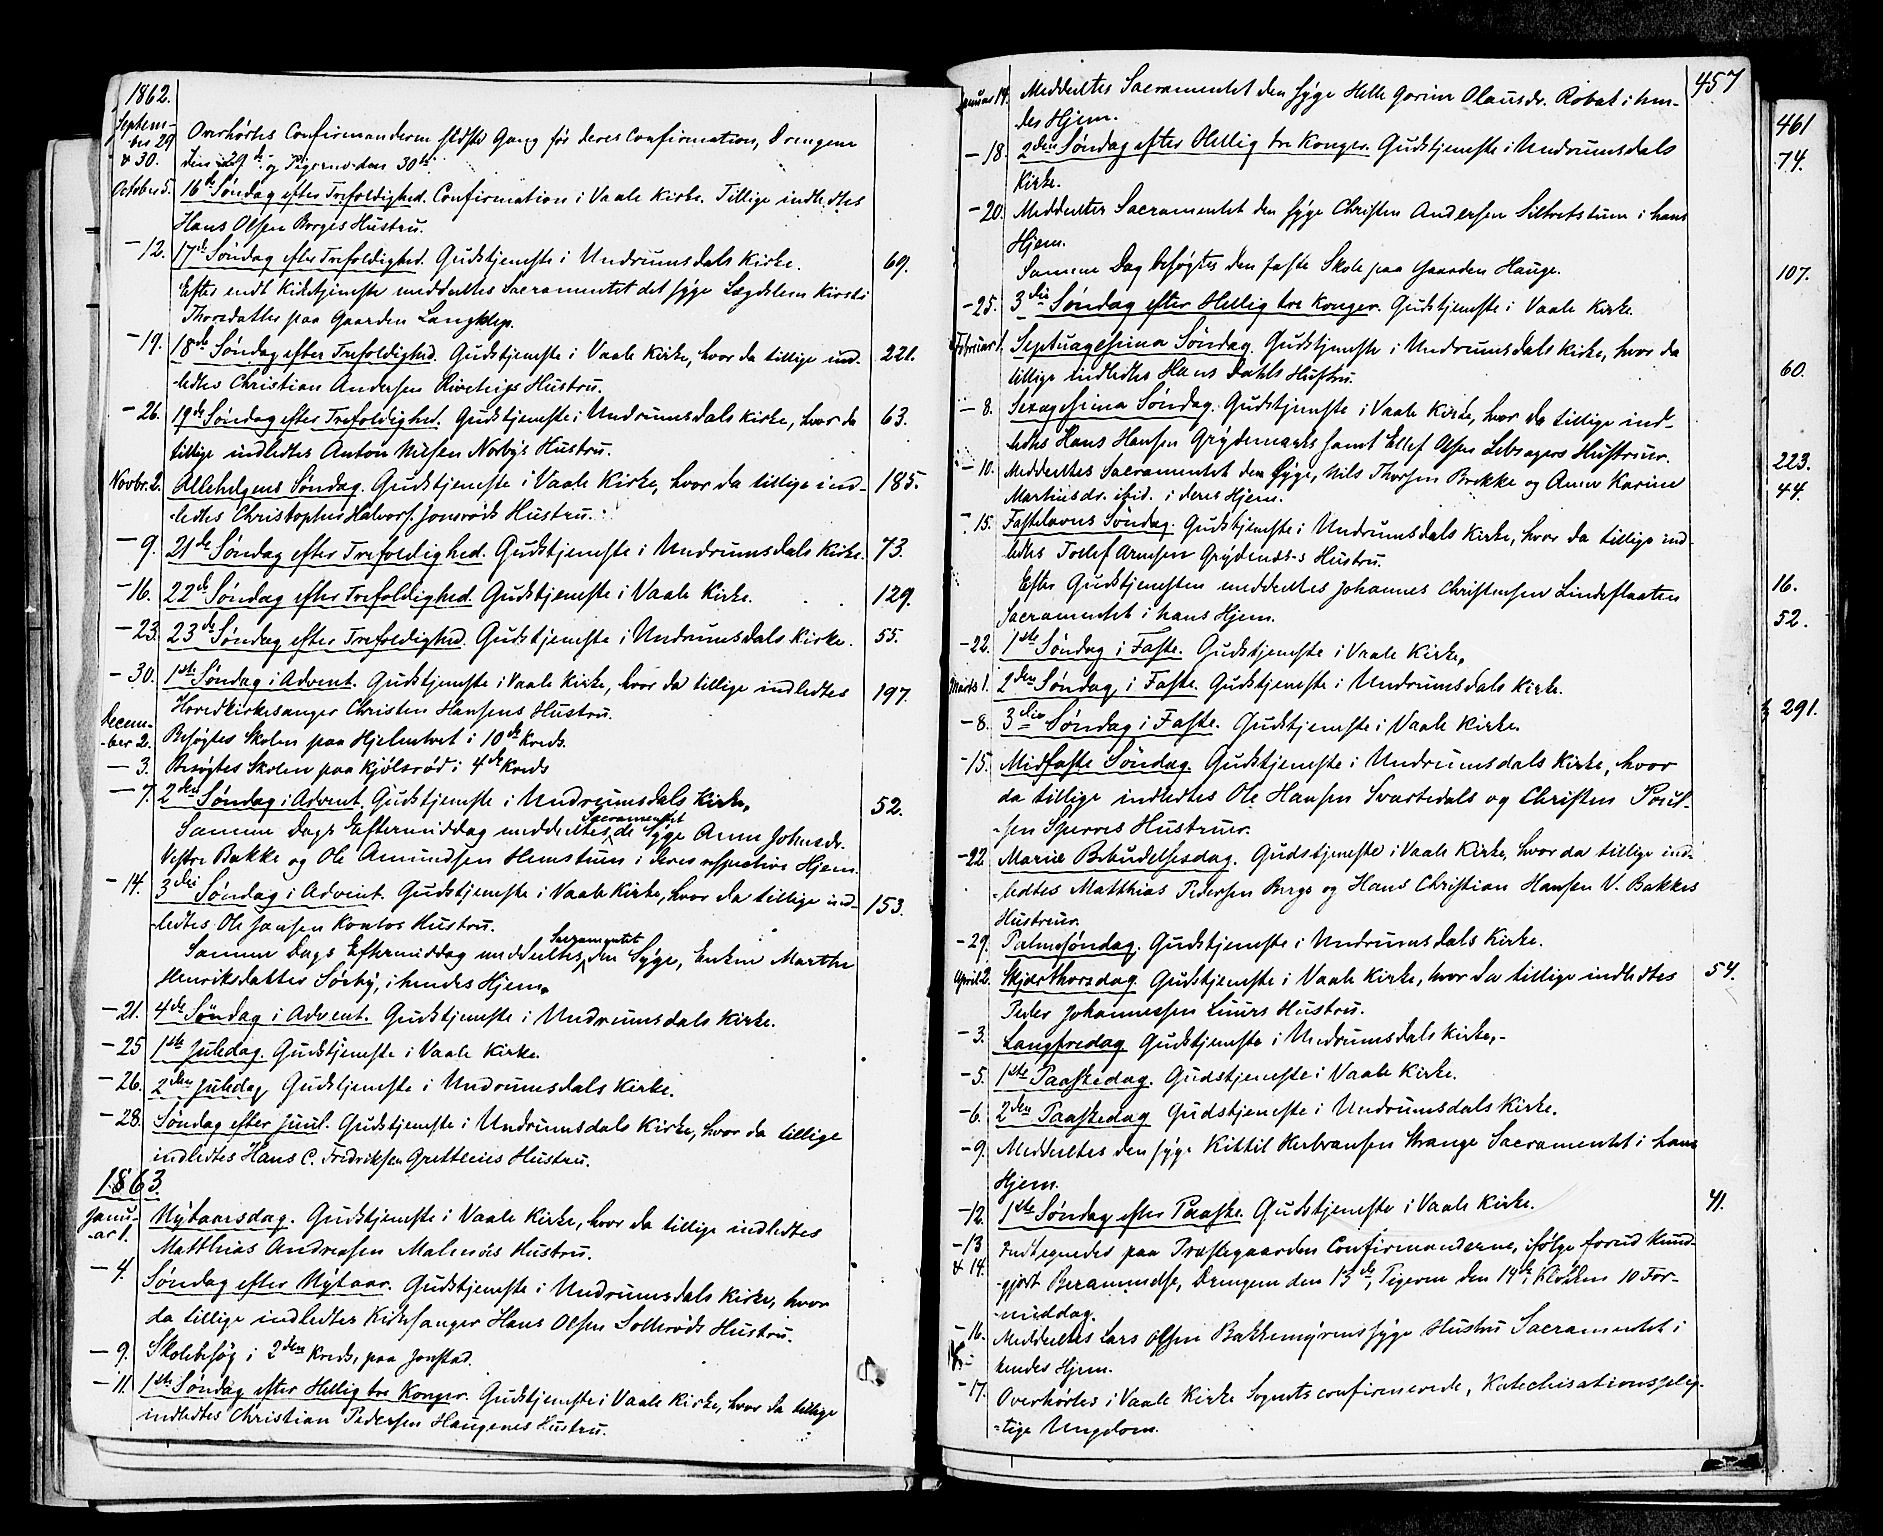 1862.
Septem-
ber 29
& 30.
Overhørtes Confirmanderne sidste Gang før deres Confirmation, Drengene
den 29de og Pigerne den 30te.
October 5. 16de Søndag efter Trefoldighed. Confirmation i Vaale Kirke. Tillige indledtes
Hans Olsen Borges Hustru.
— 12. 17de Søndag efter Trefoldighed. Gudstjeneste i Undrumsdals Kirke. 69.
Efter endt Kirketjeneste meddeeltes Sacramentet det syge Lægdslem Kirsti
Thoresdatter paa Gaarden Langklep.
— 19. 18de Søndag efter Trefoldighed. Gudstjeneste i Vaale Kirke, hvor da tillige ind- 221.
-ledtes Christian Andersen Hustru.
— 26. 19de Søndag efter Trefoldighed. Gudstjeneste i Undrumsdals Kirke, hvor da 63.
tillige indledtes Anton Nilsen Norbys Hustru.
Novbr. 2. Allehelgens Søndag. Gudstjeneste i Vaale Kirke, hvor da tillige ind- 185.
-ledtes Christopher Halvors. Jonsrøds Hustru.
— 9. 21de Søndag efter Trefoldighed. Gudstjeneste i Undrumsdals Kirke. 73.
— 16. 22de Søndag efter Trefoldighed. Gudstjeneste i Vaale Kirke. 129.
— 23. 23de Søndag efter Trefoldighed. Gudstjeneste i Undrumsdals Kirke. 55.
— 30. 1ste Søndag i Advent. Gudstjeneste i Vaale Kirke, hvor da tillige indledtes 197.
Hovedkirkesanger Christen Hansens Hustru.
Decem-
-ber 2. Besøgtes Skolen paa Hjelmtvet i 10de Kreds.
— 3. Besøgtes Skolen paa Kjølsrød i 4de Kreds
— 7. 2den Søndag i Advent. Gudstjeneste i Undrumsdals Kirke. 52.
Samme Dags Eftermiddag meddeeltes Sacramentet de Syge Anne Johnsdr.
Vestre Bakke og Ole Amundsen Hemstum i deres respective Hjem.
— 14. 3die Søndag i Advent. Gudstjeneste i Vaale Kirke, hvor da tillige ind- 153.
-ledtes Ole Jansen Hustru.
Samme Dags Eftermiddag meddeeltes Sacramentet den Syge, Enken Marthe
Henriksdatter Sørby, i hendes Hjem.
— 21. 4de Søndag i Advent. Gudstjeneste i Undrumsdals Kirke.
— 25 1ste Juledag. Gudstjeneste i Vaale Kirke.
— 26. 2den Juledag, Gudstjeneste i Undrumsdals Kirke.
— 28. Søndag efter Juul. Gudstjeneste i Undrumsdals Kirke, hvor da tillige
indledtes Hans C. Fredriksen Hustru.
1863.
Janu-
-ar 1. Nÿtaarsdag. Gudstjeneste i Vaale Kirke, hvor da tillige indledtes
Matthias Andreasen Hustru.
— 4. Søndag efter Nÿtaar. Gudstjeneste i Undrumsdals Kirke, hvor
da tillige indledtes Kirkesanger Hans Olsen Sollerøds Hustru.
— 9. Skolebesøg i 2den Kreds, paa Jonstad.
— 11. 1ste Søndag efter Hellig tre Konger. Gudstjeneste i Vaale Kirke, hvor da tillige
indledtes Christian Pedersen Haugenes Hustru.
457
Januar 14. Meddeeltes Sacramentet den syge Helle Gorine Olausdr. Robak i hen-
des Hjem.
— 18. 2den Søndag efter Hellig tre Konger. Gudstjeneste i Undrumsdals
Kirke.
— 20. Meddeeltes Sacramentet den syge Christen Andersen i hans
Hjem.
Samme Dag besøgtes den faste Skole paa Gaarden Hauge.
— 25. 3die Søndag efter Hellig tre Konger. Gudstjeneste i Vaale Kirke.
Februar 1. Septuagesima Søndag. Gudstjeneste i Undrumsdals Kirke, hvor da
tillige indledtes Hans Dahls Hustru.
— 8. Sexagesima Søndag. Gudstjeneste i Vaale Kirke, hvor da tillige ind-
-ledtes Hans Hansen Grydemarks samt Ellef Olsen Hustruer.
— 10. Meddeeltes Sacramentet den Syge, Nils Thorsen Brekke og Anne Karine
Martinsdr. ibid. i deres Hjem.
— 15. Fastelavns Søndag. Gudstjeneste i Undrumsdals Kirke, hvor da tillige ind-
ledtes Tollef Arnesen Hustru.
Efter Gudstjenesten meddeeltes Johannes Christensen Lindeflaaten
Sacramentet i hans Hjem.
— 22. 1ste Søndag i Faste. Gudstjeneste i Vaale Kirke.
Marts 1. 2den Søndag i Faste. Gudstjeneste i Undrumsdals Kirke.
— 8. 3die Søndag i Faste. Gudstjeneste i Vaale Kirke.
— 15. Midfaste Søndag. Gudstjeneste i Undrumsdals Kirke, hvor
da tillige indledtes Ole Hansen Svartedals og Christen Poul-
-sen Hustruer.
— 22. Mariæ Bebudelsesdag. Gudstjeneste i Vaale Kirke, hvor da tillige ind-
-ledtes Matthias Pedersen Berge og Hans Christian Hansen V. Bakkes
Hustruer.
— 29. Palmesøndag. Gudstjeneste i Undrumsdals Kirke.
April 2. Skjærthorsdag. Gudstjeneste i Vaale Kirke, hvor da tillige indledtes 54.
Peder Johannessen Hustru.
— 3. Langfredag. Gudstjeneste i Undrumsdals Kirke.
— 5. 1ste Paaskedag. Gudstjeneste i Vaale Kirke.
— 6. 2den Paaskedag Gudstjeneste i Undrumsdals Kirke.
— 9. Meddeeltes den syge Kittil Herbransen Strange Sacramentet i hans
Hjem.
— 12. 1ste Søndag efter Paaske. Gudstjeneste i Vaale Kirke. 41.
— 13
& 14. Indtegnedes paa Præstegaarden Confirmanderne, ifølge forud kund-
-gjort Berammelse, Drengene den 13de, Pigerne den 14de, Klokken 10 For-
-middag.
— 16. Meddeeltes Lars Olsen Bakkemyrens syge Hustru Sacramentet i
hendes Hjem.
— 17. Overhørtes i Vaale Kirke Sognets confirmerede, Katechisationsplig-
-tige Ungdom.
461
74.
107.
60.
223.
44.
16.
52.
291.